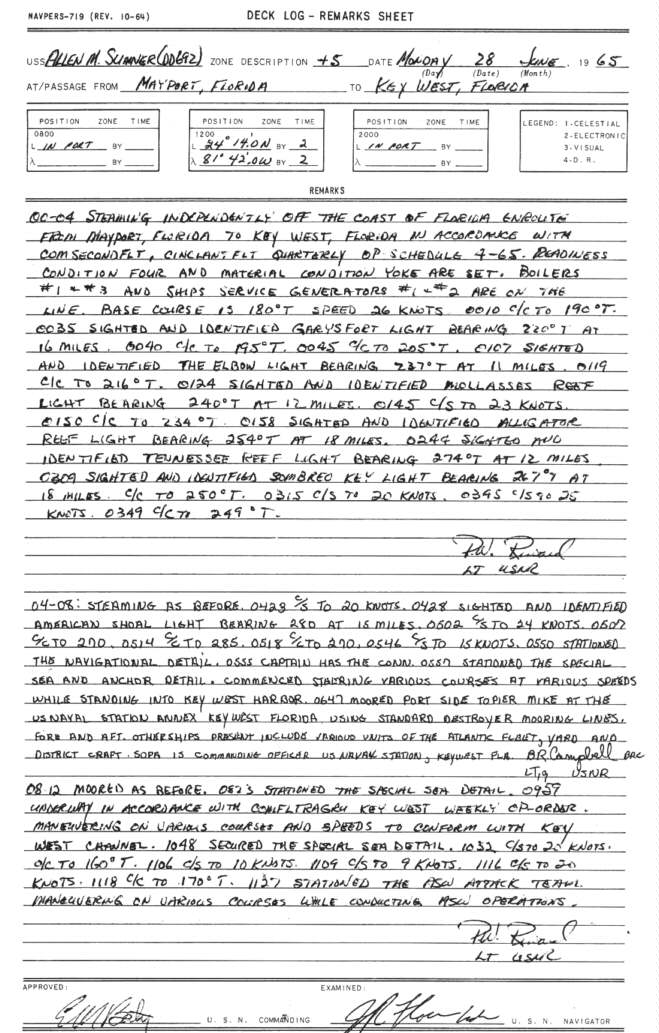 NAVPERS-719 (REV. 10-64) DECK LOG – REMARKS SHEET
USS ALLEN M. SUMNER (DD692) ZONE DESCRIPTION +5 DATE MONDAY 28 JUNE, 19 65
(Day) (Date) (Month)
AT/PASSAGE FROM MAYPORT, FLORIDA TO KEY WEST, FLORIDA
POSITION ZONE TIME
0800
L IN PORT BY
λ BY
POSITION ZONE TIME
1200
L 24° 14.0'N BY 2
λ 81° 42.0'W BY 2
POSITION ZONE TIME
2000
L IN PORT BY
λ BY
LEGEND: 1-CELESTIAL
2-ELECTRONIC
3-VISUAL
4-D. R.
REMARKS
00-04 STEAMING INDEPENDENTLY OFF THE COAST OF FLORIDA ENROUTE
FROM MAYPORT, FLORIDA TO KEY WEST, FLORIDA IN ACCORDANCE WITH
COMSECONDFLT, CINCLANTFLT QUARTERLY OP SCHEDULE 4-65. READINESS
CONDITION FOUR AND MATERIAL CONDITION YOKE ARE SET. BOILERS
#1 & #3 AND SHIPS SERVICE GENERATORS #1 & #2 ARE ON THE
LINE. BASE COURSE IS 180°T SPEED 26 KNOTS. 0010 C/C TO 190°T.
0035 SIGHTED AND IDENTIFIED GARYSFORT LIGHT BEARING 220°T AT
16 MILES. 0040 C/C TO 195°T. 0045 C/C TO 205°T. 0107 SIGHTED
AND IDENTIFIED THE ELBOW LIGHT BEARING 237°T AT 11 MILES. 0119
C/C TO 216°T. 0124 SIGHTED AND IDENTIFIED MOLLASSES REEF
LIGHT BEARING 240°T AT 12 MILES. 0145 C/S TO 23 KNOTS.
0150 C/C TO 234°T. 0158 SIGHTED AND IDENTIFIED ALLIGATOR
REEF LIGHT BEARING 254°T AT 18 MILES. 0244 SIGHTED AND
IDENTIFIED TENNESSEE REEF LIGHT BEARING 274°T AT 12 MILES
0309 SIGHTED AND IDENTIFIED SOMBREO KEY LIGHT BEARING 267°T AT
18 MILES. C/C TO 250°T. 0315 C/S TO 20 KNOTS. 0345 C/S TO 25
KNOTS. 0349 C/C TO 249°T.
LT USNR
04-08: STEAMING AS BEFORE. 0423 C/S TO 20 KNOTS. 0428 SIGHTED AND IDENTIFIED
AMERICAN SHOAL LIGHT BEARING 280 AT 15 MILES. 0502 C/S TO 24 KNOTS. 0507
C/C TO 270, 0514 C/C TO 285. 0518 C/C TO 270, 0546 C/S TO 15 KNOTS. 0550 STATIONED
THE NAVIGATIONAL DETAIL. 0555 CAPTAIN HAS THE CONN. 0557 STATIONED THE SPECIAL
SEA AND ANCHOR DETAIL. COMMENCED STEERING VARIOUS COURSES AT VARIOUS SPEEDS
WHILE STANDING INTO KEY WEST HARBOR. 0647 MOORED PORT SIDE TO PIER MIKE AT THE
US NAVAL STATION ANNEX KEY WEST FLORIDA, USING STANDARD DESTROYER MOORING LINES,
FORE AND AFT. OTHER SHIPS PRESENT INCLUDE VARIOUS UNITS OF THE ATLANTIC FLEET, YARD AND
DISTRICT CRAFT. SOPA IS COMMANDING OFFICER US NAVAL STATION, KEYWEST FLA. B.R. Campbell
LTJG USNR
08-12 MOORED AS BEFORE. 0823 STATIONED THE SPECIAL SEA DETAIL. 0937
UNDERWAY IN ACCORDANCE WITH COMFLTRAGRU KEY WEST WEEKLY OP-ORDER.
MANEUVERING ON VARIOUS COURSES AND SPEEDS TO CONFORM WITH KEY
WEST CHANNEL. 1048 SECURED THE SPECIAL SEA DETAIL. 1032 C/S TO 20 KNOTS.
C/C TO 160°T. 1106 C/S TO 10 KNOTS. 1109 C/S TO 9 KNOTS. 1116 C/S TO 20
KNOTS. 1118 C/C TO 170°T. 1127 STATIONED THE ASW ATTACK TEAM.
MANEUVERING ON VARIOUS COURSES WHILE CONDUCTING ASW OPERATIONS.
LT USNR
APPROVED: EXAMINED:
U. S. N. COMMANDING U. S. N. NAVIGATOR